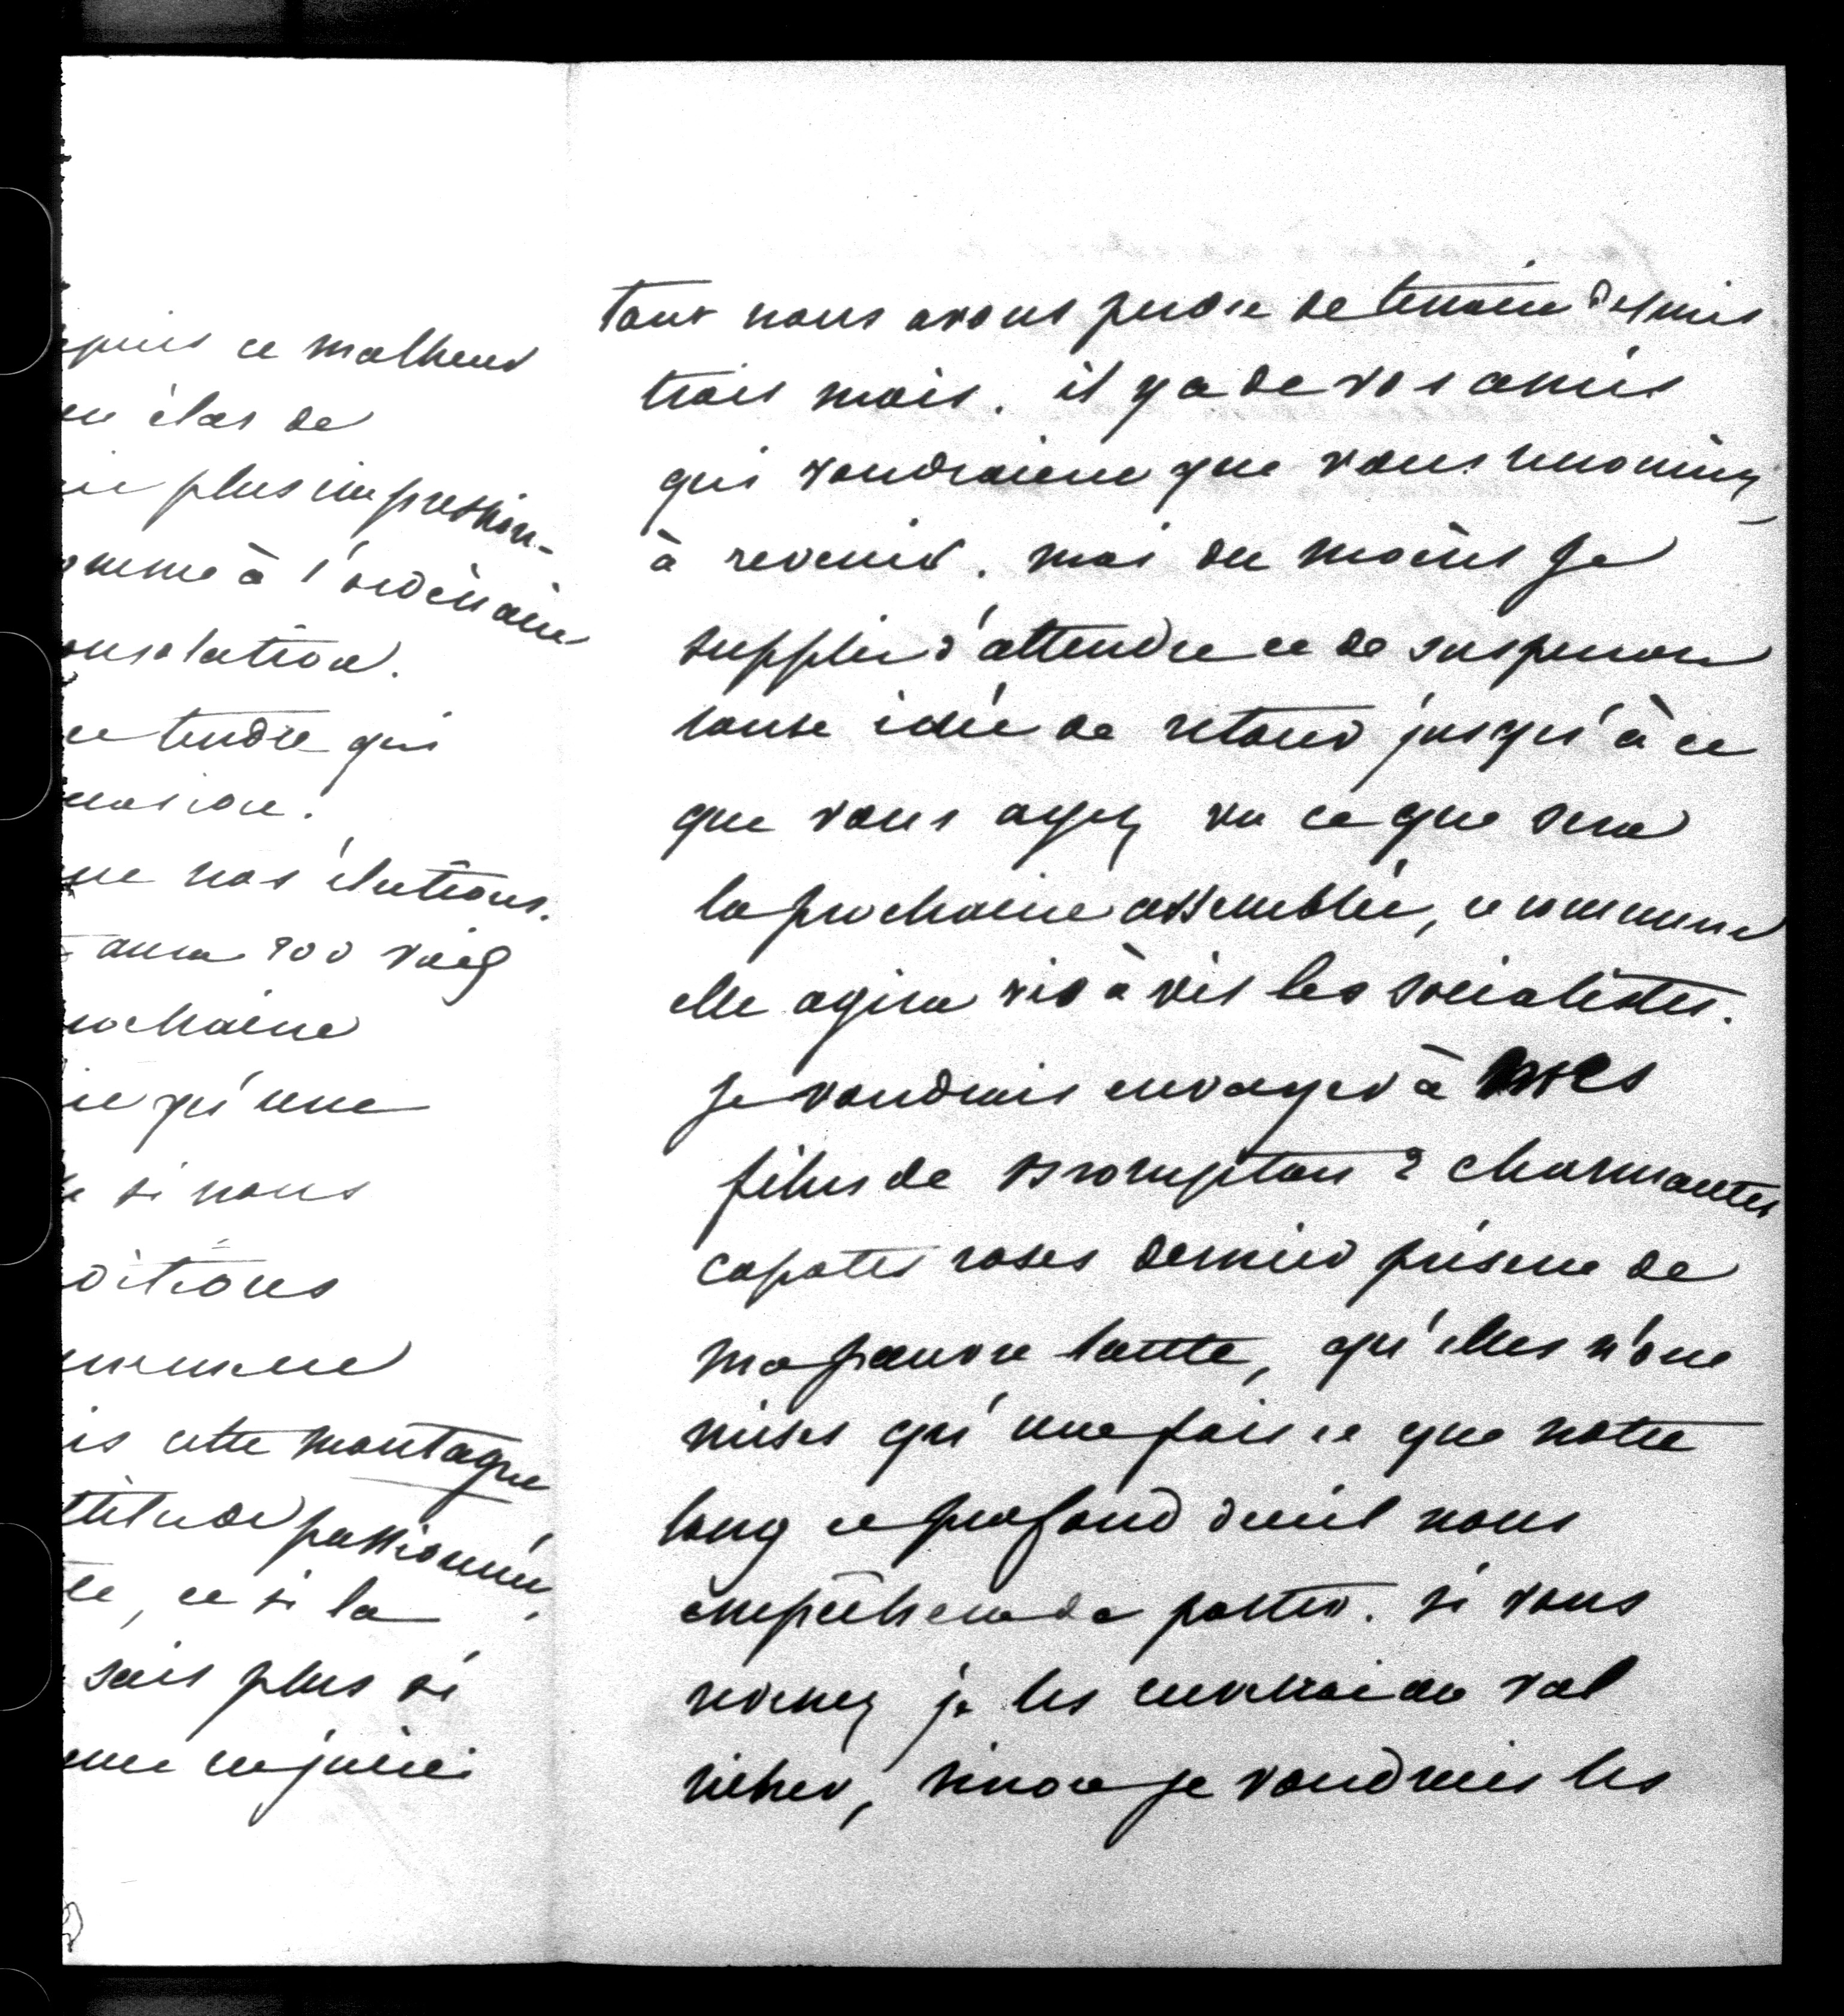 epuis ce malheur
en état de
ie plus impression-
omme à l'ordinaire
onsolation.
ce tendre qui
casion.
ue nos élections.
aura 900 voix
rochaine
ie qu'une
si nous
ditions
is cette montagne
ttitude passionnée,
te, et si la
sais plus si
une enjuiei
tant nous avons perdu de terrain depuis
trois mois. il y a de vos amis
qui voudraient que vous renonciez
à revenir. moi du moins je
supplie d'attendre et de suspendre
toute idée de retour jusqu'à ce
que vous ayez vu ce que sera
la prochaine assemblée, et comment
elle agira vis à vis les socialistes.
Je voudrais envoyer à mes
filles de Brompton 2 charmantes
capotes roses dernier présent de
ma pauvre tante, qu'elles n'ont
mises qu'une fois et que notre
long et profond deuil nous
empêchera de porter. si vous
revenez je les enverrai au val
richer, sinon je voudrais les